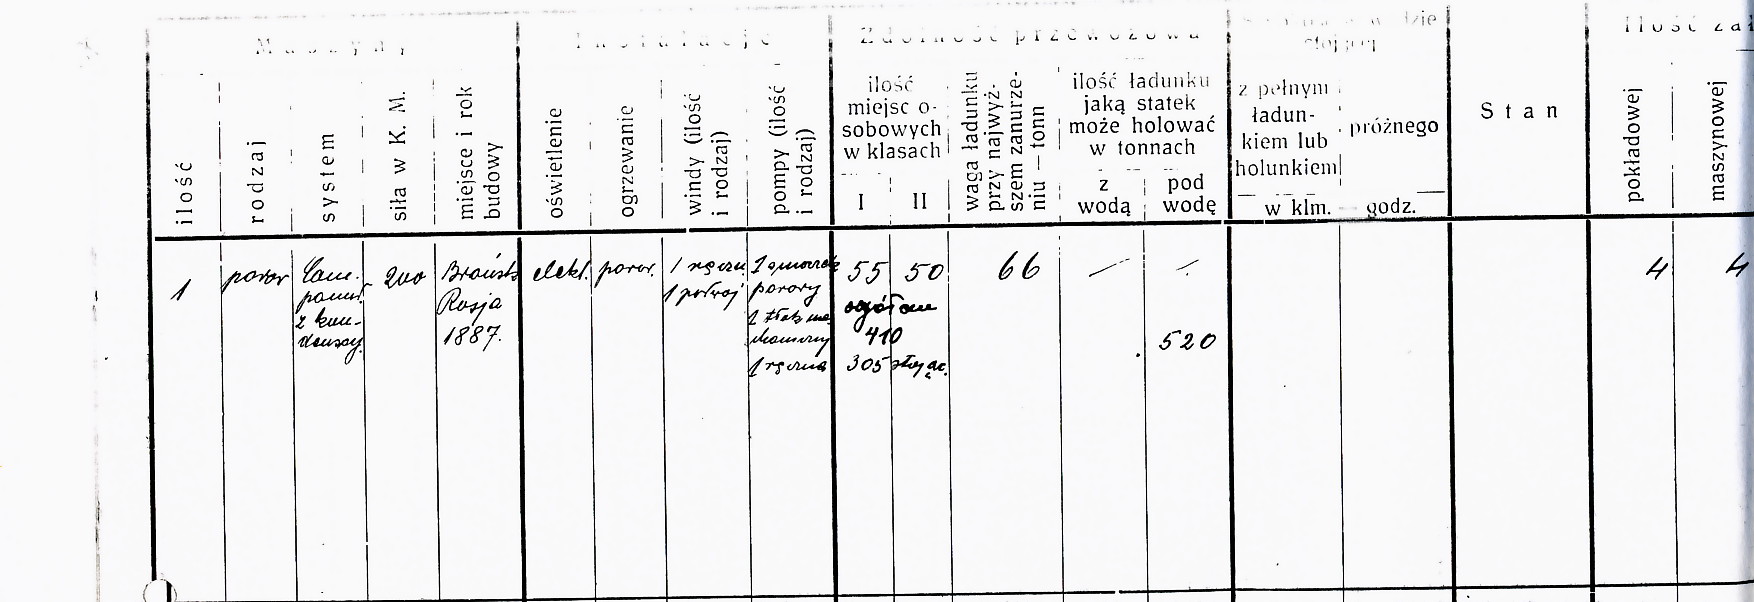 Maszyny
Instalacje
Zdolność przewozowa
stojącej
Ilość zał
ilość
rodzaj
system
siła w K. M.
miejsce i rok
budowy
oświetlenie
ogrzewanie
windy (ilość
i rodzaj)
pompy (ilość
i rodzaj)
ilość
miejsc o-
sobowych
w klasach
I
II
waga ładunku
przy najwyż-
szem zanurze-
niu — tonn
ilość ładunku
jaką statek
może holować
w tonnach
z
wodą
pod
wodę
z pełnym
ładun-
kiem lub
holunkiem
próżnego
w klm.
godz.
Stan
pokładowej
maszynowej
1
parow
2 kon-
densacy.
200
Rosja
1887.
elekt.
parow.
1 ręczn
1 parowy
1 ręczna
55
50
ogółem
410
305 stojąc.
66
—
520
4
4